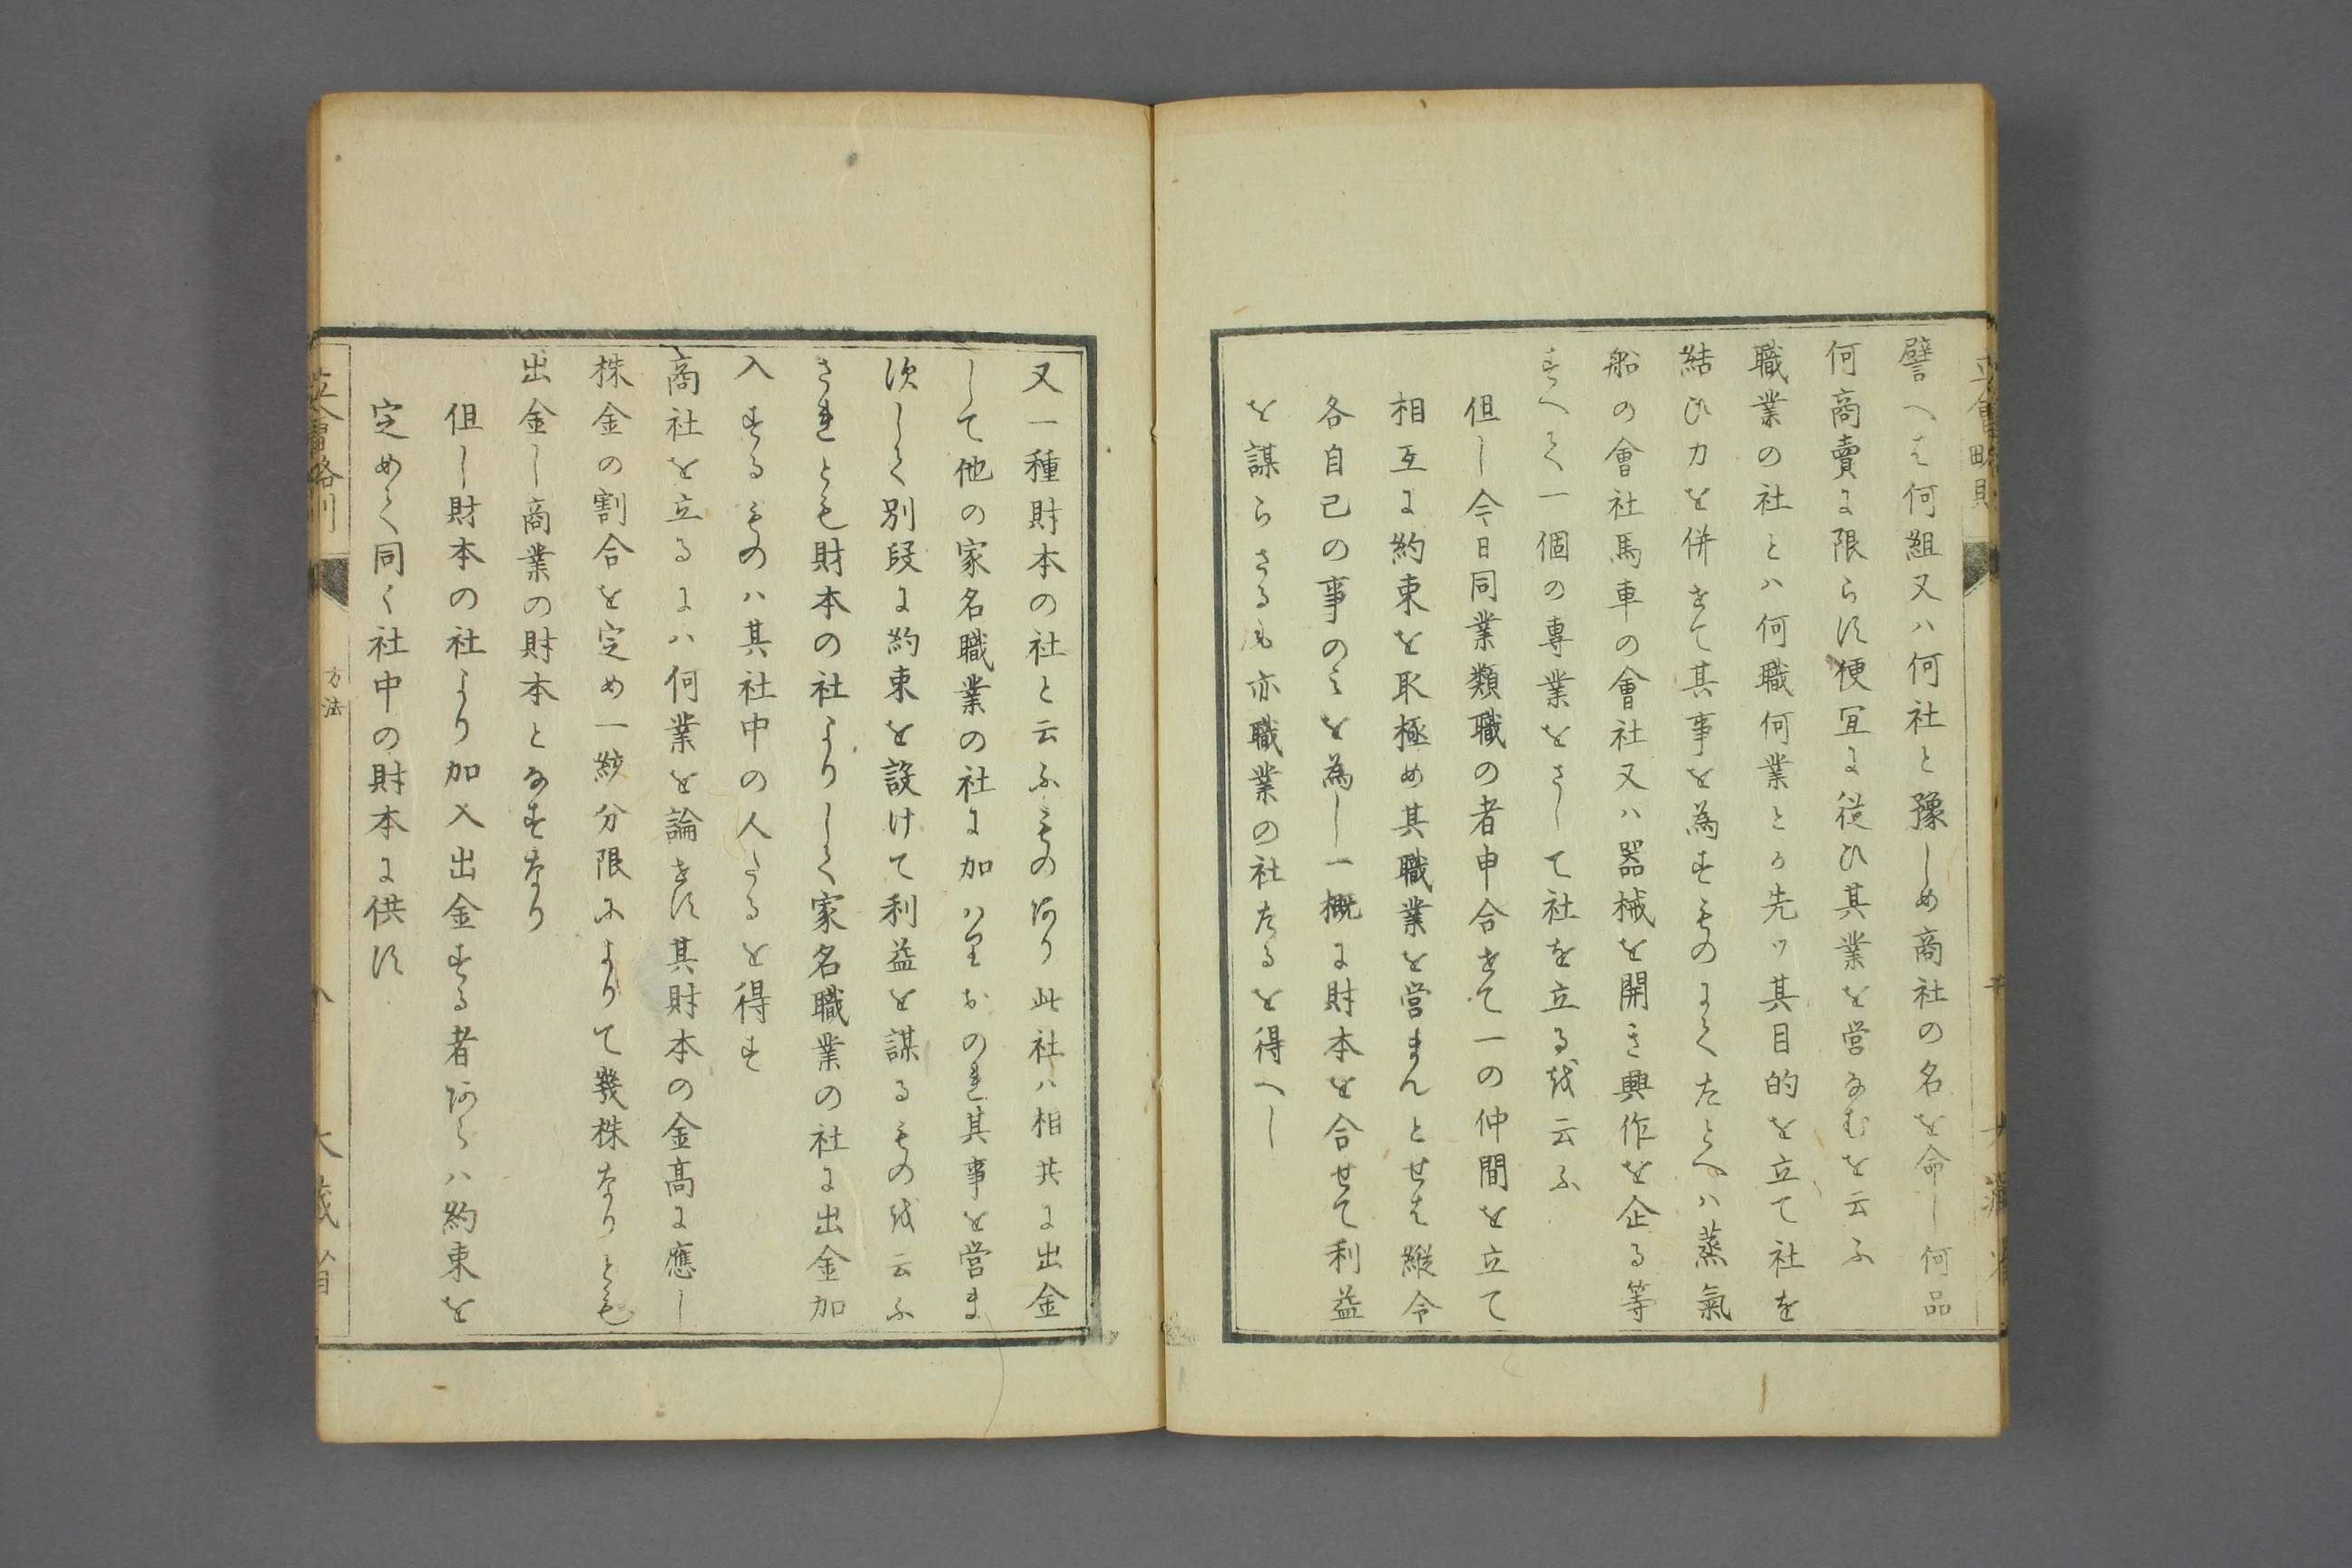 譬へは何組又ハ何社と豫しめ商社の名を命し何品
何商賣に限らす便冝に従ひ其業を営なむを云ふ
職業の社とハ何職何業とか先ツ其目的を立て社を
結ひ力を併せて其事を為すものにてたとへハ蒸氣
船の會社馬車の會社又ハ器械を開き興作を企る等
すへて一個の専業をさして社を立るを云ふ
但し今日同業類職の者申合せて一の仲間を立て
相互に約束を取極め其職業を営まんとせは縦令
各自己の事のみを為し一概に財本を合せて利益
を謀らさるも亦職業の社たるを得へし
又一種財本の社と云ふものあり此社ハ相共に出金
して他の家名職業の社に加ハりおのれ其事を営ま
すして別段に約束を設けて利益を謀るものを云ふ
されとも財本の社よりして家名職業の社に出金加
入するものハ其社中の人たるを得す
商社を立るにハ何業を論せす其財本の金高に應し
株金の割合を定め一統分限によりて幾株なりとも
出金し商業の財本となすなり
但し財本の社より加入出金する者あらハ約束を
定めて同く社中の財本に供す
立會略則
方法
大蔵省